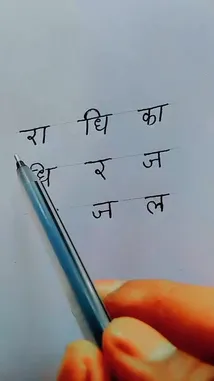 रा धि का
धि र ज
ज ल